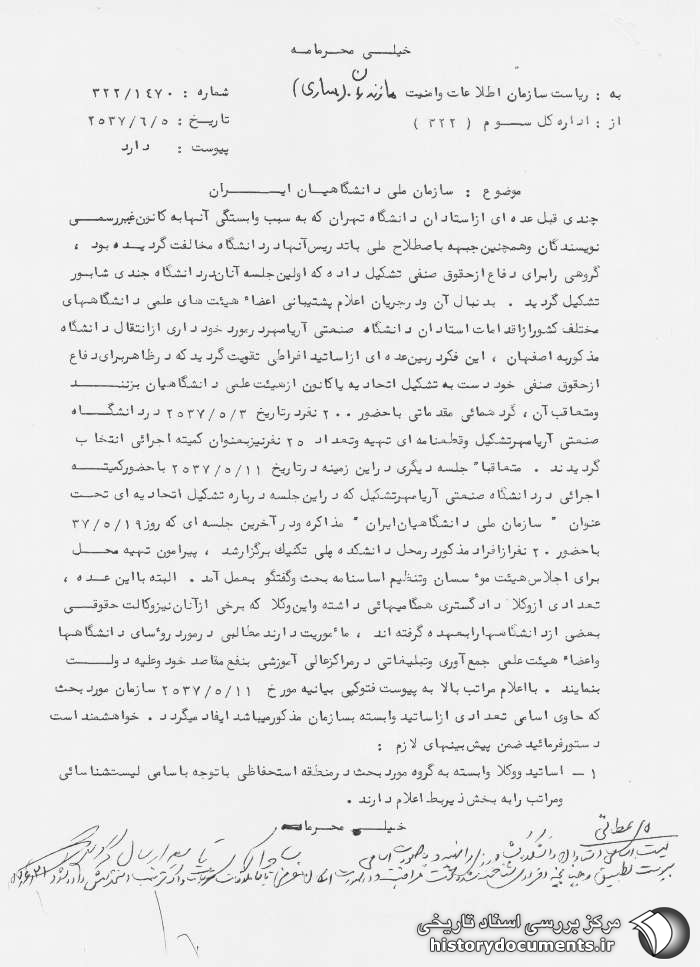 خیلی محرمانه
به : ریاست سازمان اطلاعات وامنیت مازندران (ساری)
شماره : ۳۲۲/۱٤۷۰
از : اداره کل سوم ( ۳۲۲ )
تاریخ : ۲۵۳۷/٦/۵
پیوست : دارد
موضوع : سازمان ملی دانشگاهیان ایران
چندی قبل عده ای ازاستادان دانشگاه تهران که به سبب وابستگی آنهابه کانون غیررسمی
نویسندگان وهمچنین جبهه باصطلاح ملی باتدریس آنهادردانشگاه مخالفت گردیده بود ،
گروهی رابرای دفاع ازحقوق صنفی تشکیل داده که اولین جلسه آنان دردانشگاه جندی شاپور
تشکیل گردید . بدنبال آن ودرجریان اعلام پشتیبانی اعضاء هیئت های علمی دانشگاههای
مختلف کشورازاقدامات استادان دانشگاه صنعتی آریامهردرمورد خودداری ازانتقال دانشگاه
مذکوربه اصفهان ، این فکردربین عده ای ازاساتید افراطی تقویت گردید که درظاهربرای دفاع
ازحقوق صنفی خود دست به تشکیل اتحادیه یاکانون ازهیئت علمی دانشگاهیان بزنند
ومتعاقب آن ، گردهمائی مقدماتی باحضور ۲۰۰ نفردرتاریخ ۲۵۳۷/۵/۳ دردانشگاه
صنعتی آریامهرتشکیل وقطعنامه ای تهیه وتعداد ۲۵ نفرنیزبعنوان کمیته اجرائی انتخاب
گردیدند . متعاقبا" جلسه دیگری دراین زمینه درتاریخ ۲۵۳۷/۵/۱۱ باحضورکمیته
اجرائی دردانشگاه صنعتی آریامهرتشکیل که دراین جلسه درباره تشکیل اتحادیه ای تحت
عنوان " سازمان ملی دانشگاهیان ایران " مذاکره ودرآخرین جلسه ای که روز ۳۷/۵/۱۹
باحضور ۲۰ نفرازافراد مذکوردرمحل دانشکده پلی تکنیک برگزارشد ، پیرامون تهیه محل
برای اجلاس هیئت موءسسان وتنظیم اساسنامه بحث وگفتگو بعمل آمد . البته بااین عده ،
تعدادی ازوکلا دادگستری همگامیهائی داشته واین وکلا که برخی ازآنان نیزوکالت حقوقی
بعضی ازدانشگاههارابعهده گرفته اند ، ماءموریت دارند مطالبی درمورد روءسای دانشگاهها
واعضاء هیئت علمی جمع آوری وتبلیغاتی درمراکزعالی آموزشی بنفع مقاصد خود وعلیه دولت
بنمایند . بااعلام مراتب بالا به پیوست فتوکپی بیانیه مورخ ۲۵۳۷/۵/۱۱ سازمان مورد بحث
که حاوی اسامی تعدادی ازاساتید وابسته بسازمان مذکورمیباشد ایفاد میگردد . خواهشمند است
دستورفرمائید ضمن پیش بینیهای لازم :
۱ - اساتید ووکلا وابسته به گروه مورد بحث درمنطقه استحفاظی باتوجه باسامی لیست شناسائی
ومراتب رابه بخش ذیربط اعلام دارند .
خیلی محرمانه
مرکز بررسی اسناد تاریخی
historydocuments.ir